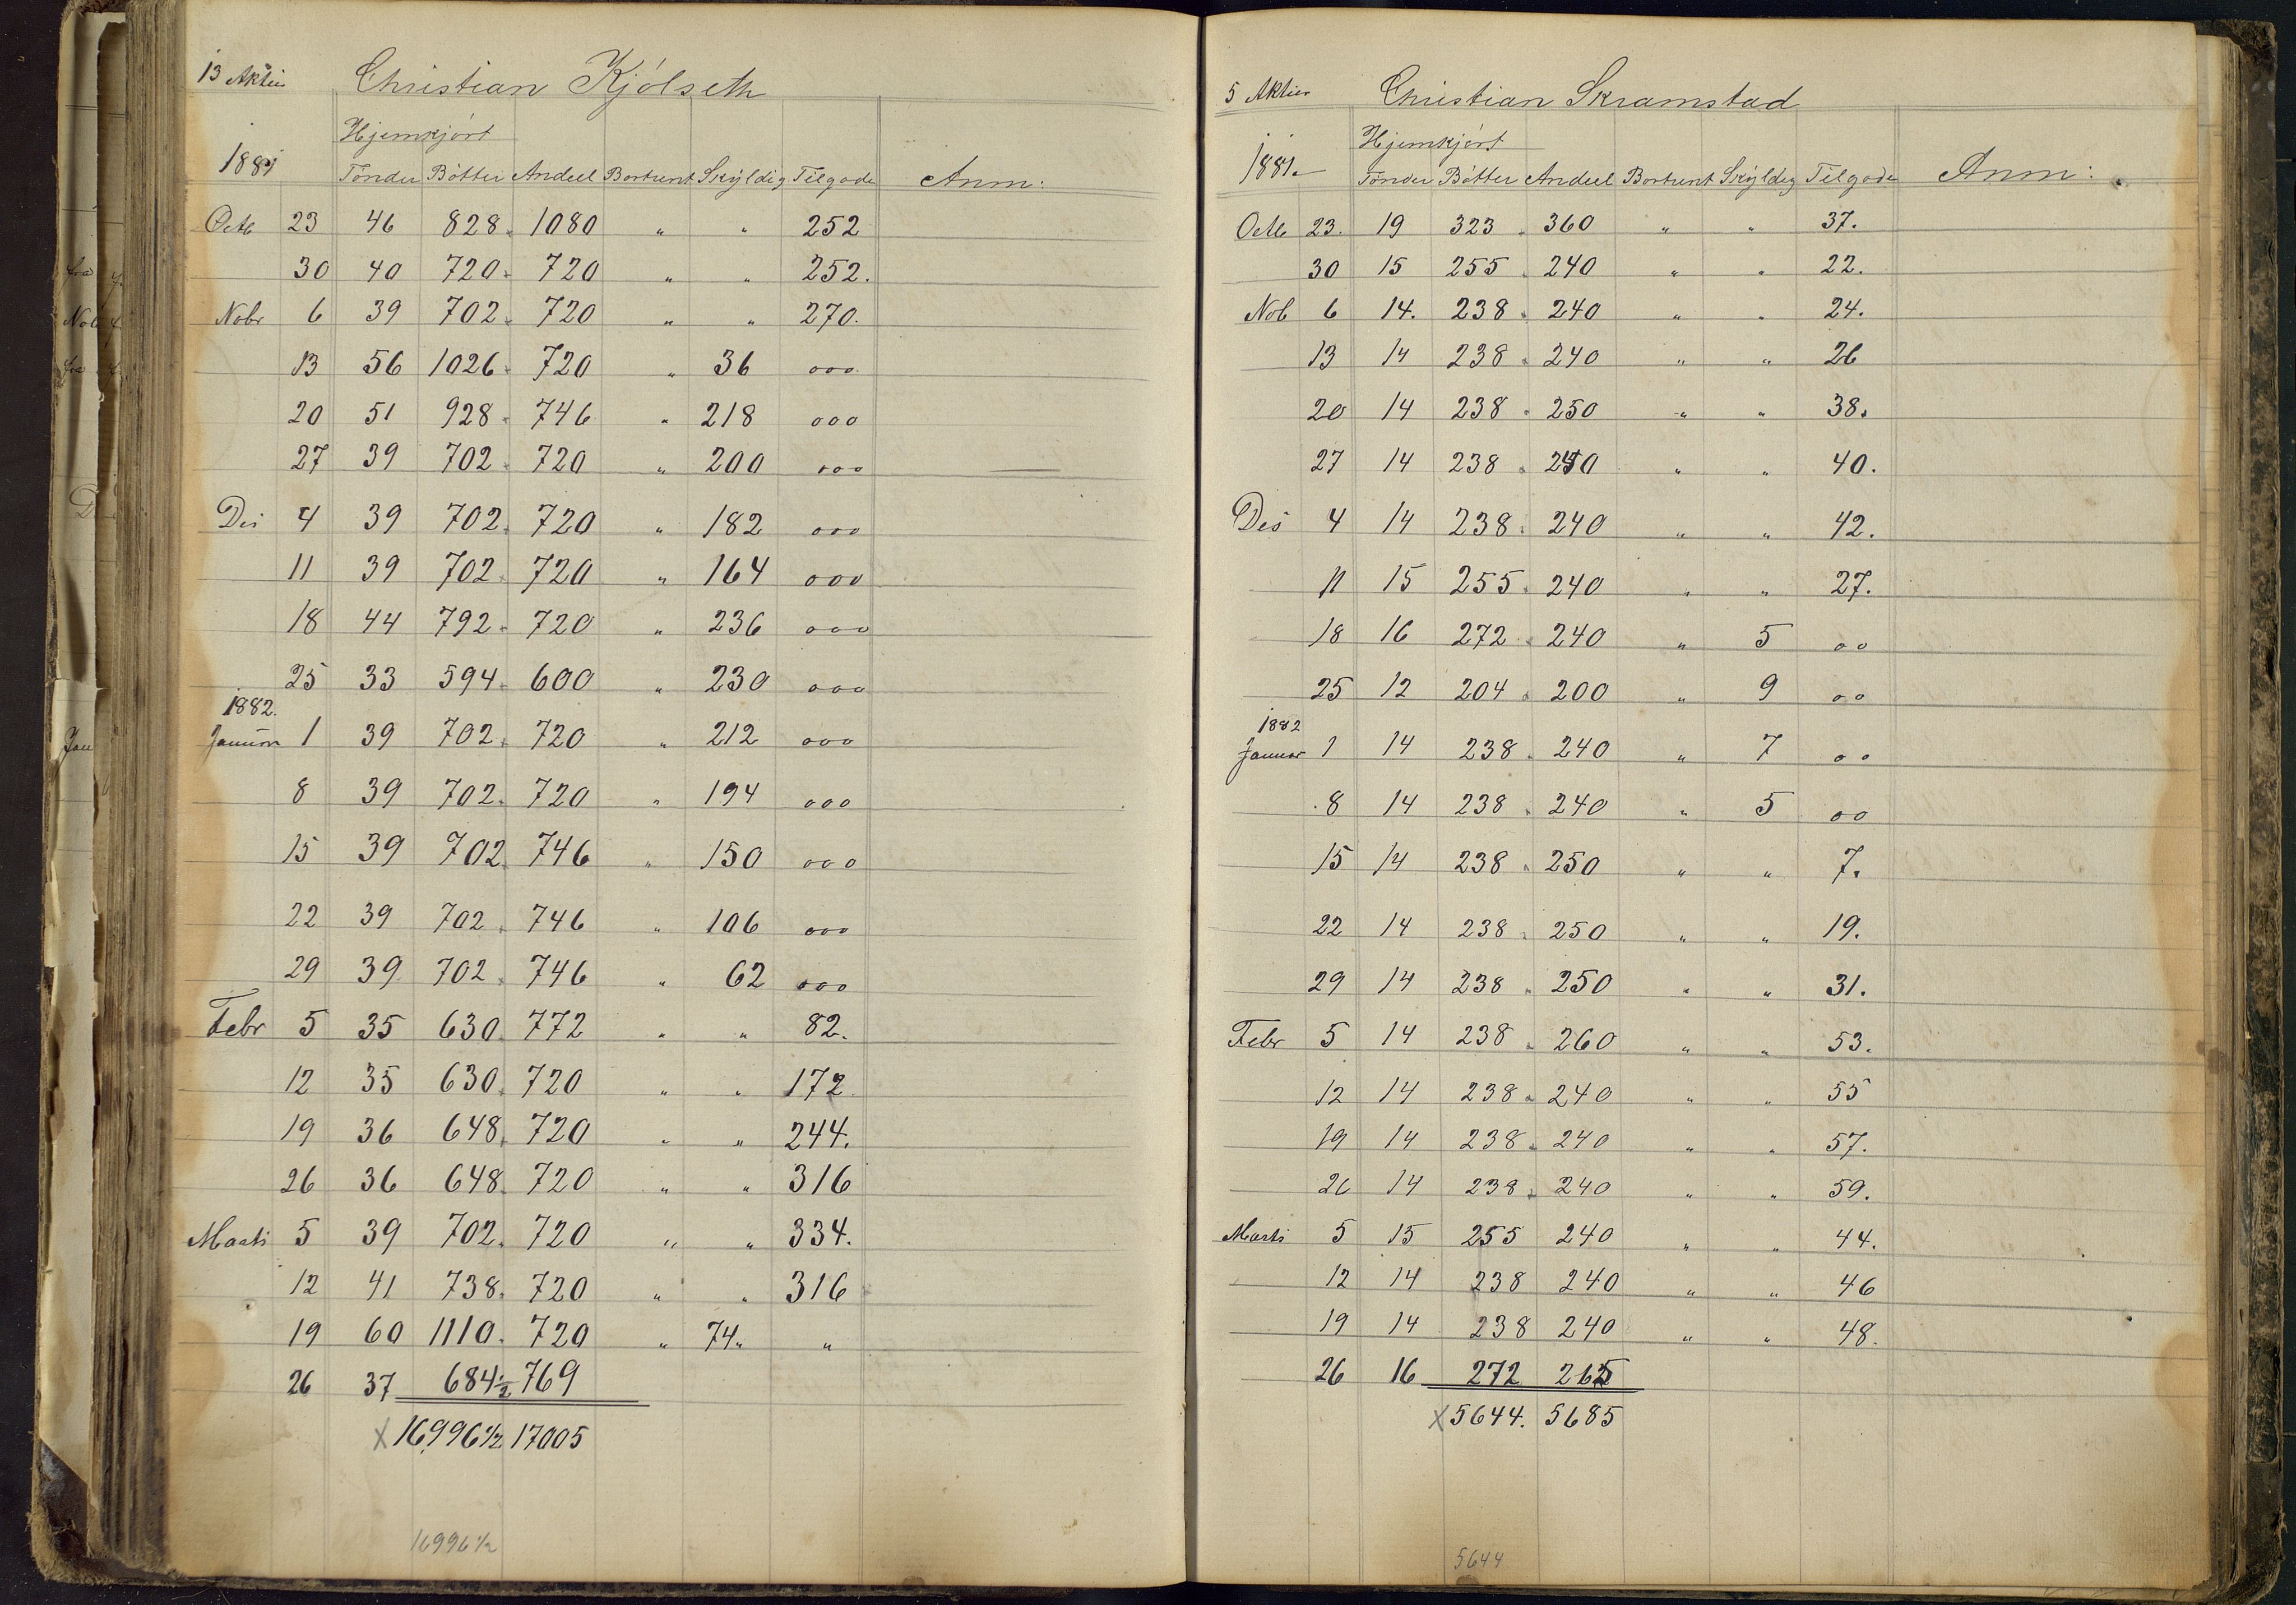 13 Aktier Christian Kjölseth
Hjemkjört
1881 Tönder Bötter Andeel Bortsent Skyldig Tilgode Anm:
Octb 23 46 828 " 1080 " " 252
30 40 720 " 720 " " 252.
Nobr 6 39 702 " 720 " " 270.
13 56 1026 " 720 " 36 ooo
20 51 928 " 746 " 218 ooo
27 39 702 " 720 " 200 ooo
Des 4 39 702 " 720 " 182 ooo
11 39 702 " 720 " 164 ooo
18 44 792 " 720 " 236 ooo
25 33 594 " 600 " 230 ooo
1882.
Januar 1 39 702 " 720 " 212 ooo
8 39 702 " 720 " 194 ooo
15 39 702 " 746 " 150 ooo
22 39 702 " 746 " 106 ooo
29 39 702 " 746 " 62 ooo
Febr 5 35 630 " 772 " " 82.
12 35 630 " 720 " " 172
19 36 648 " 720 " " 244.
26 36 648 " 720 " " 316
Marts 5 39 702 " 720 " " 334.
12 41 738 " 720 " " 316
19 60 1110 " 720 " 74 " "
26 37 684 1/2 769
X 16996 1/2 17005
16996 1/2
5 Aktier Christian Skramstad
Hjemkjört
1881. Tönder Bötter Andeel Bortsent Skyldig Tilgode Anm:
Octb 23. 19 323 " 360 " " 37.
30 15 255 " 240 " " 22.
Nob 6 14. 238 " 240 " " 24.
13 14 238 " 240 " " 26
20 14 238 " 250 " " 38.
27 14 238 " 240 " " 40.
Des 4 14 238 " 240 " " 42.
11 15 255 " 240 " " 27.
18 16 272 " 240 " 5 oo
25 12 204 " 200 " 9 oo
1882
Januar 1 14 238 " 240 " 7 oo
8 14 238 " 240 " 5 oo
15 14 238 " 250 " " 7.
22 14 238 " 250 " " 19.
29 14 238 " 250 " " 31.
Febr 5 14 238 " 260 " " 53.
12 14 238 " 240 " " 55
19 14 238 " 240 " " 57.
26 14 238 " 240 " " 59.
Marts 5 15 255 240 " " 44.
12 14 238 240 " " 46
19 14 238 240 " " 48.
26 16 272 265
X 5644. 5685
5644